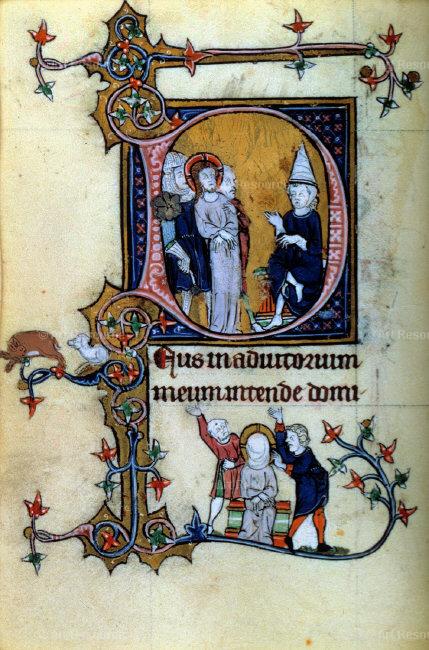 Deus in adiutorium
meum intende domi